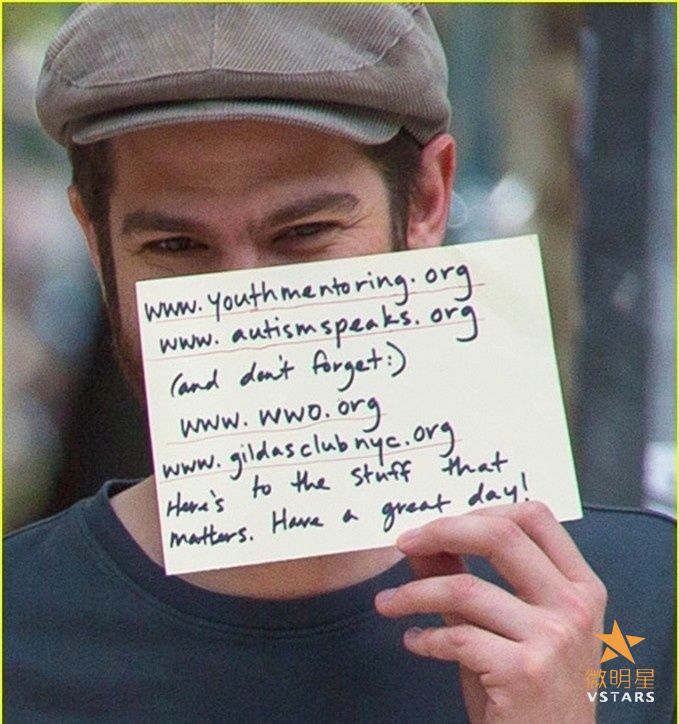 www.youthmentoring.org
www.autismspeaks.org
(and don't forget:)
www.wwo.org
www.gildasclubnyc.org
Here's to the stuff that
matters. Have a great day!
微明星
VSTARS